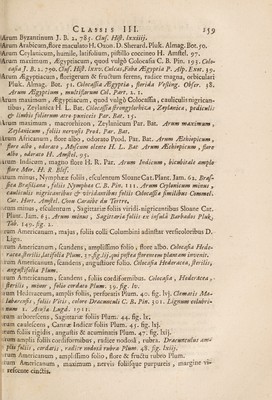 CLASSIS III. 159
Arum Byzantinum J. B. 2. 785. Clus. Hist. lxxiiij.
Arum Arabicum, flore maculato H. Oxon. D. Sherard. Pluk. Almag. Bot. 50.
Arum Ceylanicum, humile, latifolium, pistillo coccineo H. Amstel. 97.
Arum maximum, Ægyptiacum, quod vulgò Colocasia C. B. Pin. 195. Colo-
casia J. B. 2. 790. Clus. Hist. lxxv. Colcas, Faba Ægyptia P. Alp. Exot. 39.
Arum Ægyptiacum, florigerum & fructum ferens, radice magna, orbiculari
Pluk. Almag. Bot. 51. Colocassia Ægyptia, florida Vesling. Obser. 58.
Arum Ægyptium, multifarum Col. Part. 2. 1.
Arum maximum, Ægyptiacum, quod vulgò Colocasia, caulibus nigrican-
tibus, Zeylanica H. L. Bat. Colocasia strongylorhiza, Zeylanica, pediculis
& limbis foliorum atro puniceis Par. Bat. 15.
Arum maximum, macrorhizon, Zeylanicum Par. Bat. Arum maximum,
Zeylanicum, foliis nervosis Prod. Par. Bat.
Arum Africanum, flore albo, odorato Prod. Par. Bat. Arum Æthiopicum,
flore albo, odorato, Moscum olente H. L. Bat Arum Æthiopicum, flore
albo, odorato H. Amstel. 95.
Arum Indicum, magno flore H. R. Par. Arum Indicum, bicubitale amplo
flore Mor. H. R. Blef.
Arum minus, Nymphææ foliis, esculentum Sloane Cat. Plant. Jam. 62. Bras-
sica Brasiliana, foliis Nymphææ C. B. Pin. 111. Arum Ceylanicum minus,
cauliculis nigricantibus & viridantibus foliis Colocasiæ similibus Commel.
Cat. Hort. Amstel. Chou Caraibe du Tertre.
um minus, esculentum, Sagittariæ foliis viridi-nigricantibus Sloane Cat.
Plant. Jam. 63. Arum minus, Sagittariæ foliis ex insulâ Barbados Pluk.
Tab. 149. fig. 2.
um Americanum, majus, foliis colli Columbini adinstar versicoloribus D.
Ligu.
um Americanum, scandens, amplissimo folio, flore albo. Colocasia Hede-
racea, sterilis, latifolia Plum. 37. fig. lij. ubi postea florentem plantam invenit.
um Americanum, scandens, angustiore folio. Colocasia Hederacea, sterilis,
angustifolia Plum.
um Americanum, scandens, foliis cordiformibus. Colocasia, Hederacea,
sterilis, minor, folio cordato Plum. 39. fig. lv.
um Hederaceum, amplis foliis, perforatis Plum. 40. fig. lvj. Clematis Ma-
labarensis, foliis Vitis, colore Dracunculi C. B. Pin. 301. Lignum colubri-
num 1. Acosta Lugd. 1911.
um arborescens, Sagittariæ foliis Plum. 44. fig. lx.
um caulescens, Cannæ Indicæ foliis Plum. 45. fig. lxj.
um foliis rigidis, angustis & acuminatis Plum. 47. fig. lxij.
um amplis foliis cordiformibus, radice nodosâ, rubra. Dracunculus am-
plis foliis, cordatis, radice nodosâ rubra Plum. 48. fig. lxiij.
um Americanum, amplissimo folio, flore & fructu rubro Plum.
um Americanum, maximum, nervis foliisque purpureis, margine vi-
rescente cinctis.